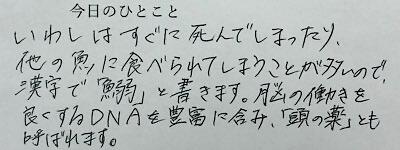 今日のひとこと
いわしはすぐに死んでしまったり、
他の魚に食べられてしまうことが多いので、
漢字で「鰯」と書きます。脳の働きを
良くするDNAを豊富に含み、「頭の薬」とも
呼ばれます。